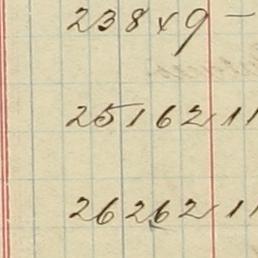 23849 -
25162 11
26262 11